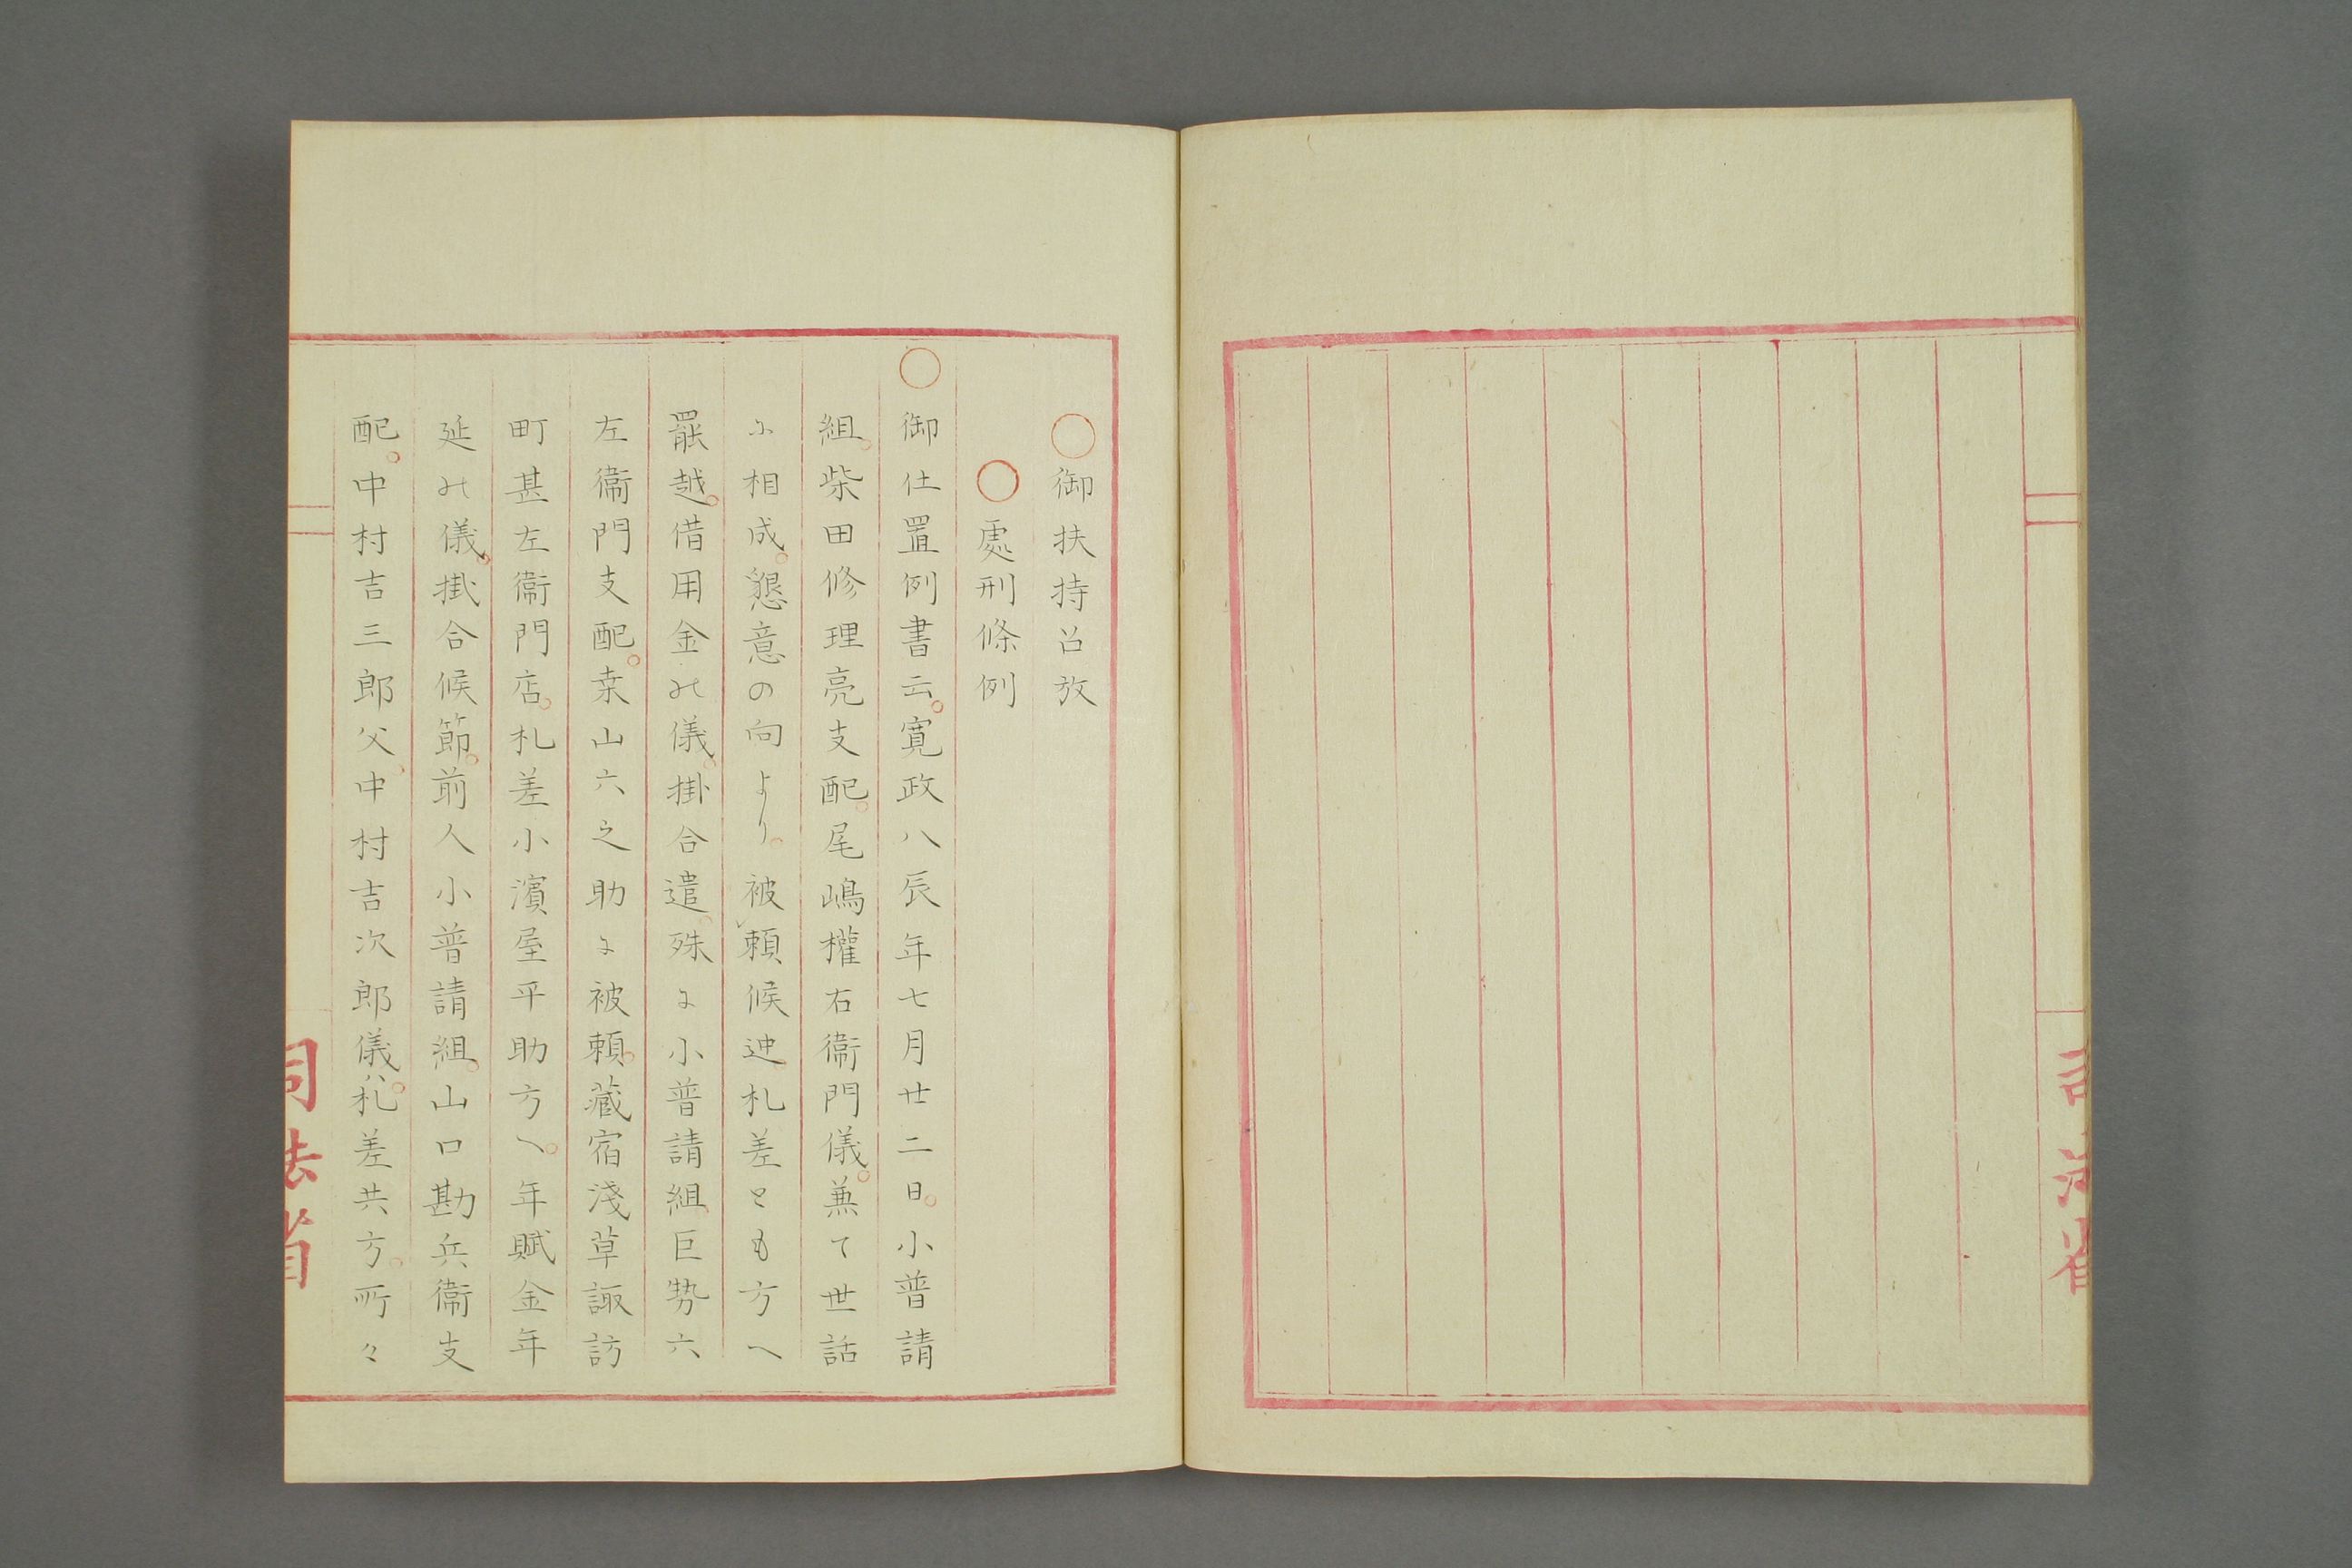 ○御扶持召放
○處刑條例
○御仕置例書云。寛政八辰年七月廿二日。小普請
組。柴田修理亮支配。尾嶋權右衞門儀。兼て世話
に相成。懇意の向より。被頼候迚。札差とも方へ
罷越。借用金の儀。掛合遣。殊に小普請組。巨勢六
左衞門支配。桒山六之助に被頼。藏宿淺草諏訪
町甚左衞門店。札差小濱屋平助方へ。年賦金年
延の儀。掛合候節。前人小普請組。山口勘兵衞支
配。中村吉三郎父、中村吉次郎儀ハ。札差共方。所々
司法省
司法省